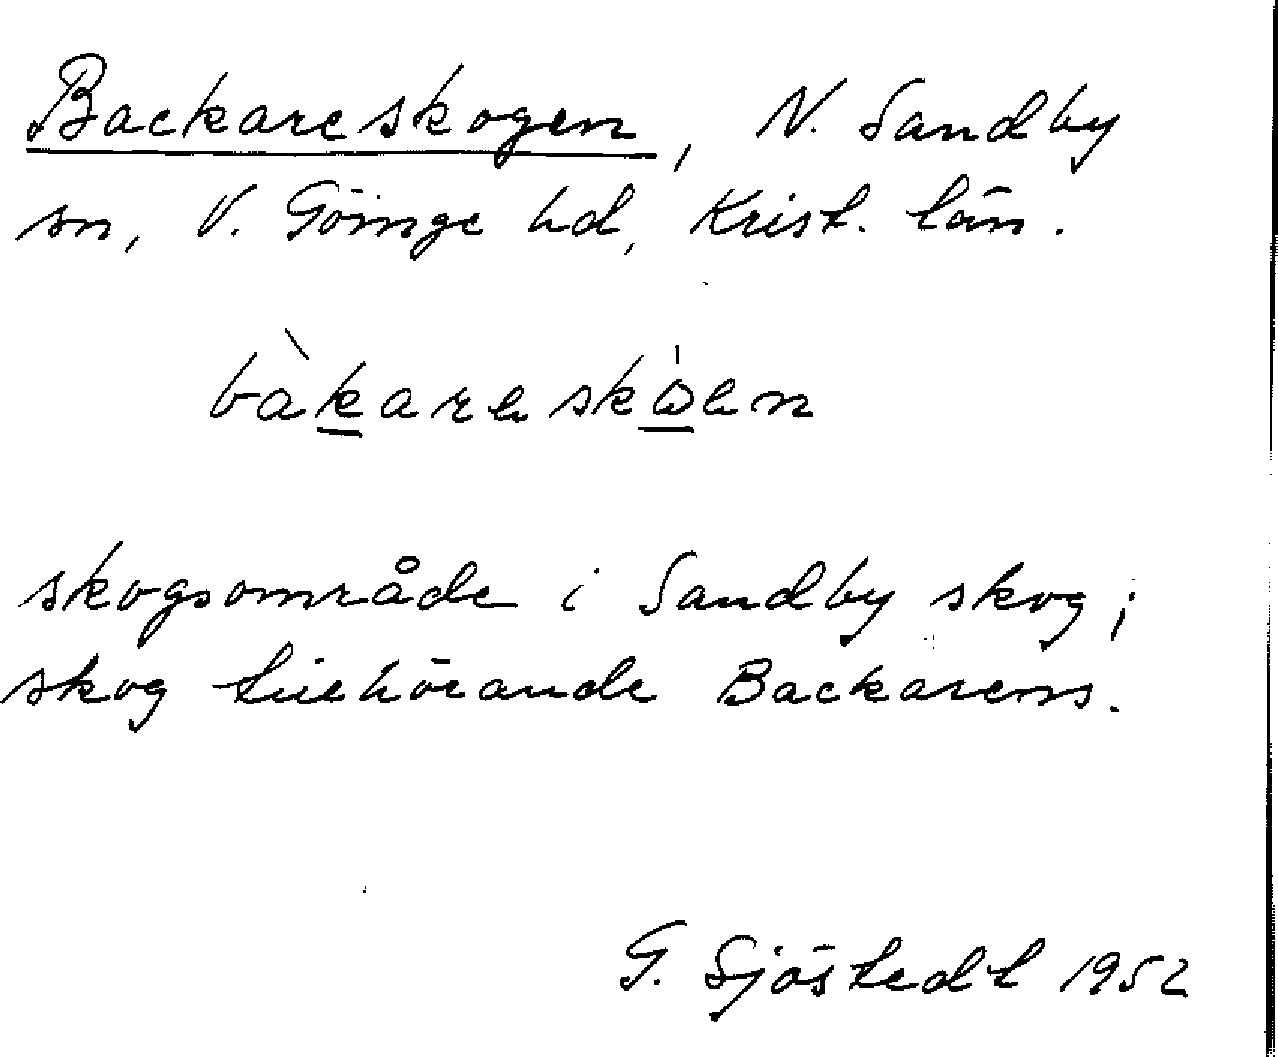 Backareskogen, N. Sandby
sn, V. Göinge hd, Krist. län.
bàkareskωen
skogsområde i Sandby skog;
skog tillhörande Backarens.
G. Sjöstedt 1952